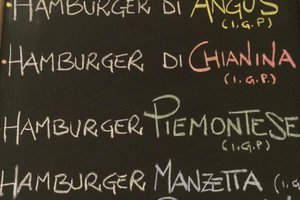 • HAMBURGER DI ANGUS
(I.G.P)
• HAMBURGER DI CHIANINA
(I.G.P.)
HAMBURGER PIEMONTESE
(I.G.P)
HAMBURGER MANZETTA